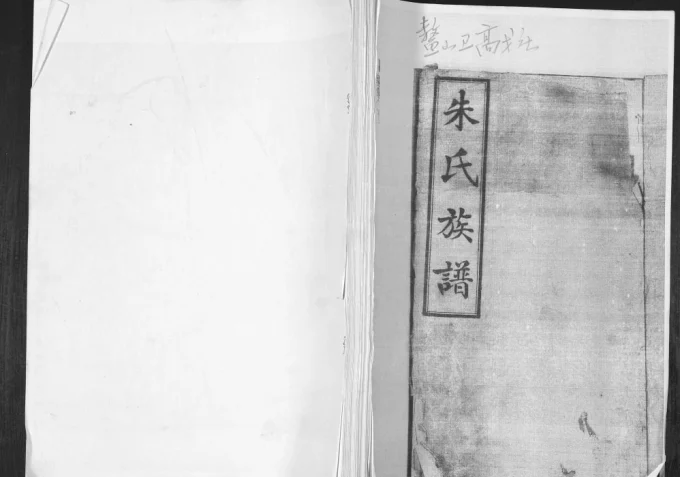 鳌山卫高戈庄
朱氏族譜